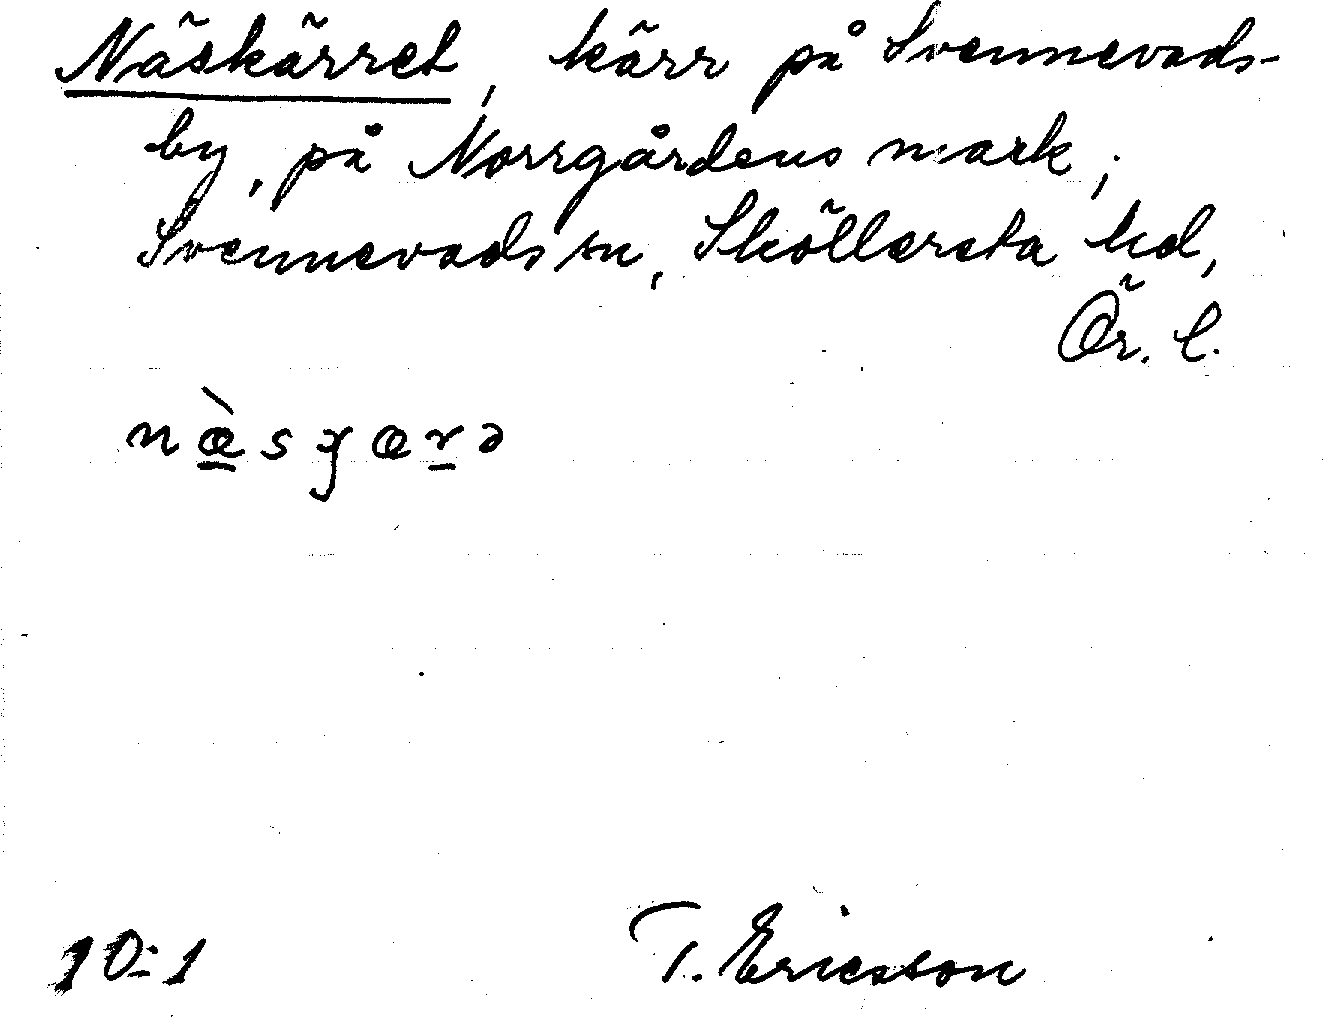 Näskärret, kärr på Svennevads-
by, på Norrgårdens mark,
Svennevads sn, Sköllersta hd,
Ör. l.
næ̀sɣærə
10:1 T. Ericsson